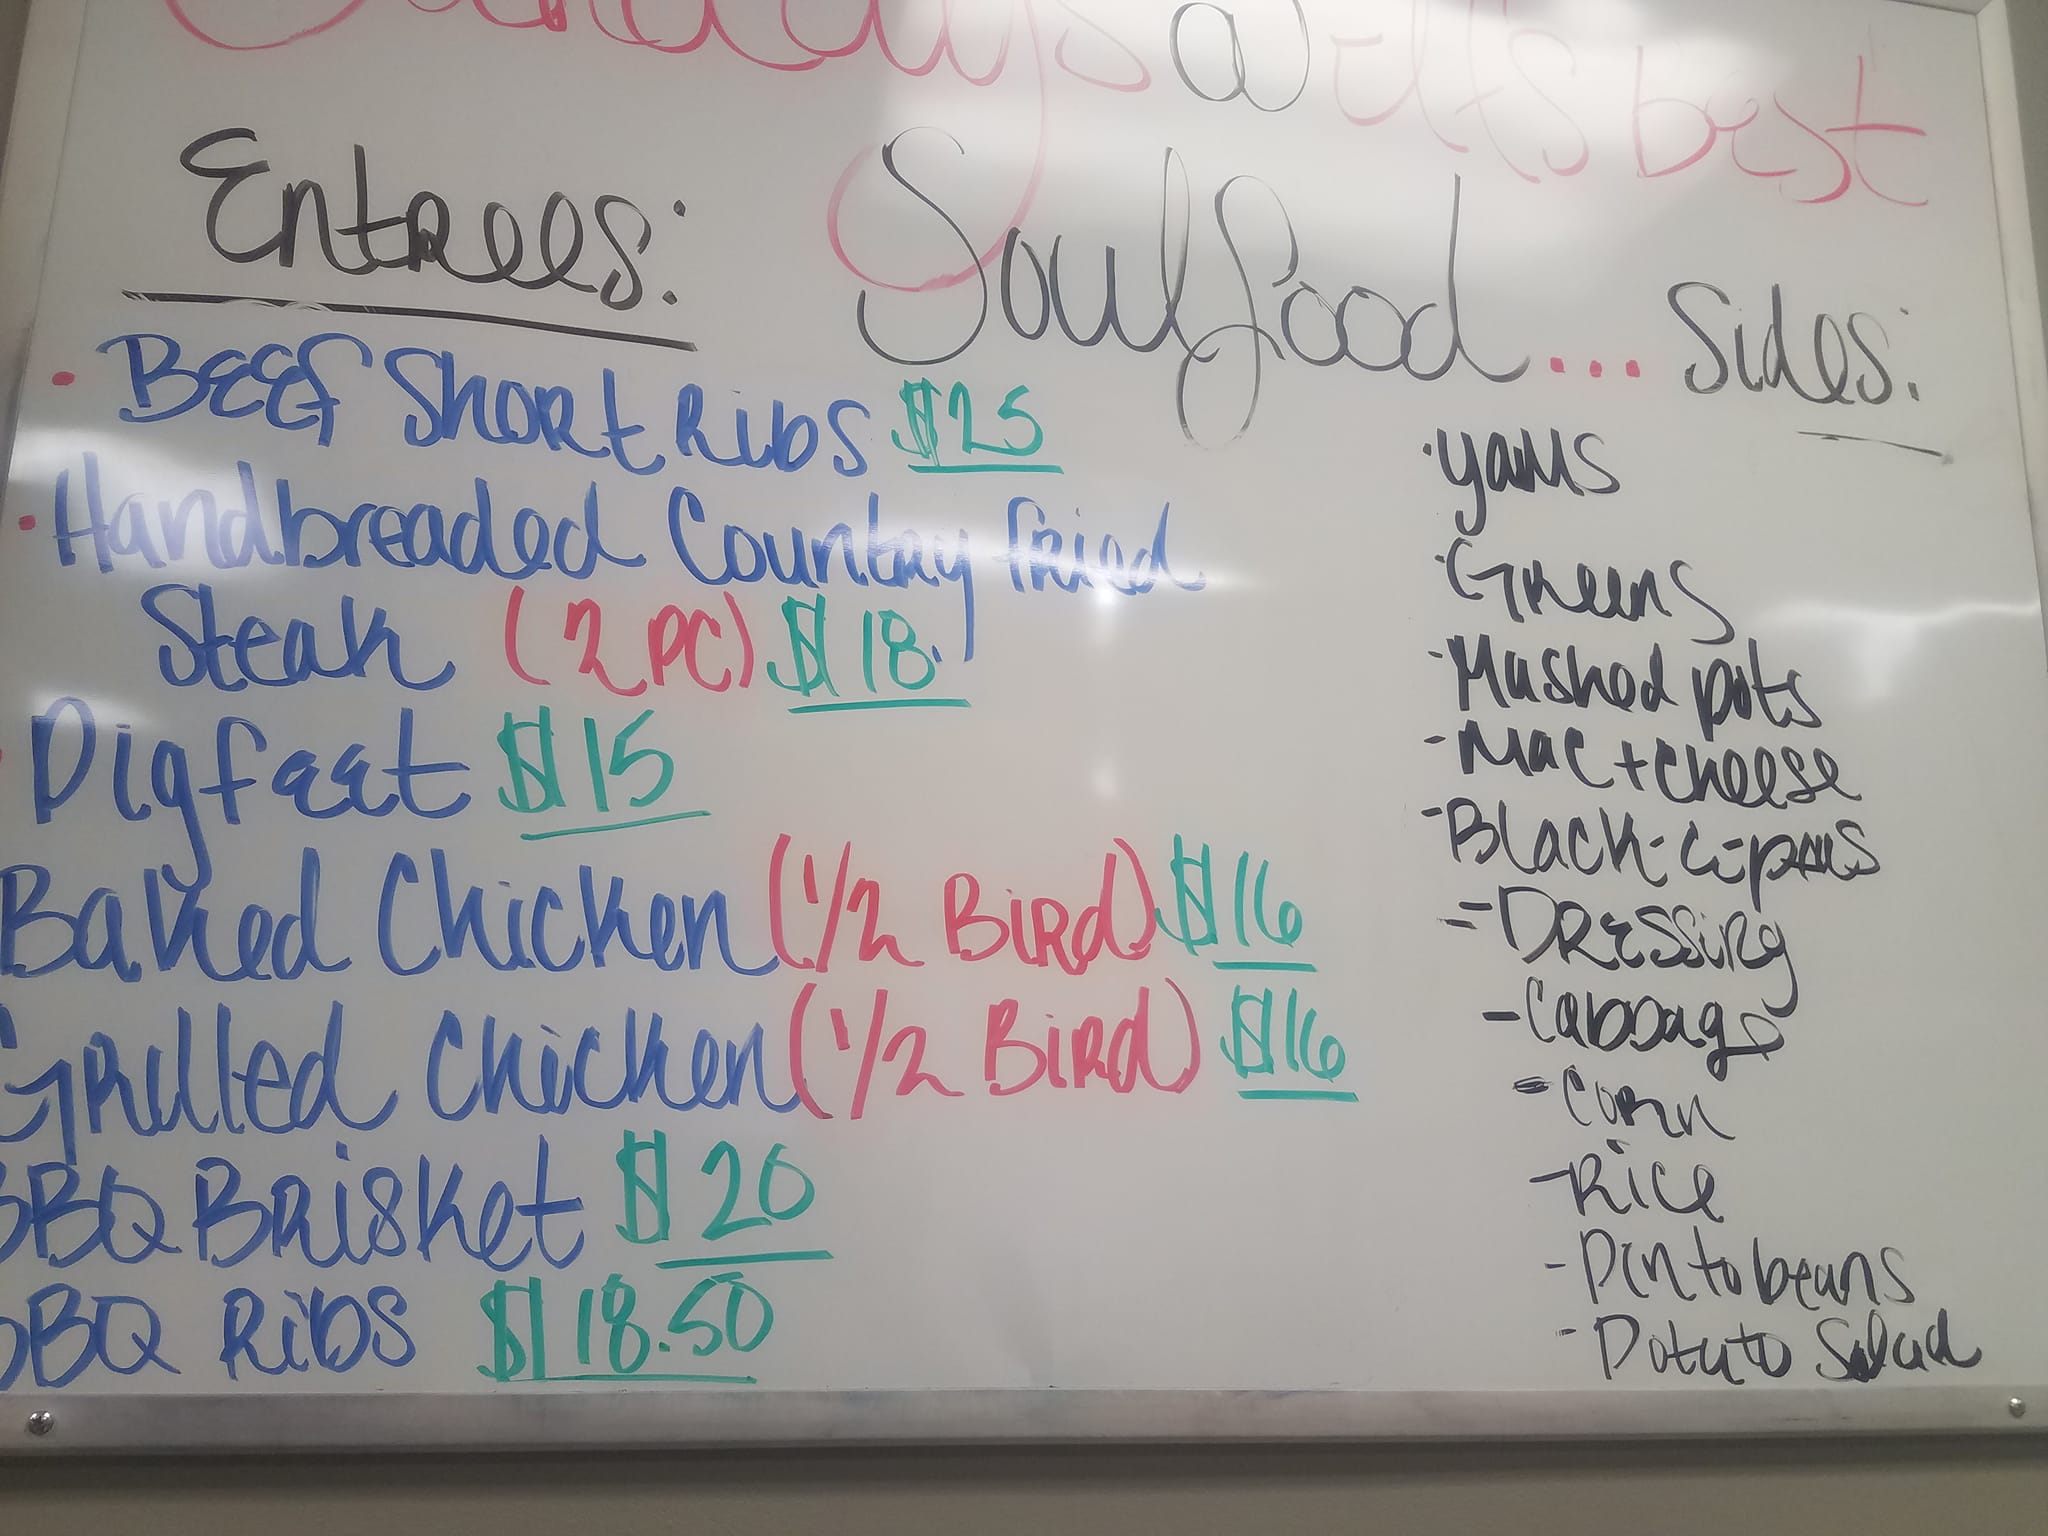 Sundays @ It's best
Soulfood...
Entrees:
• Beef Short Ribs $25
• Handbreaded Country fried
Steak (2 PC) $18.
Pigfeet $15
Baked Chicken (1/2 Bird) $16
Grilled Chicken (1/2 Bird) $16
BBQ Brisket $20
BBQ Ribs $18.50
Sides:
• yams
• Greens
- Mashed pots
- Mac + cheese
- Black-i-peas
- Dressing
- Cabbage
- Corn
- Rice
- Pinto beans
- Potato Salad